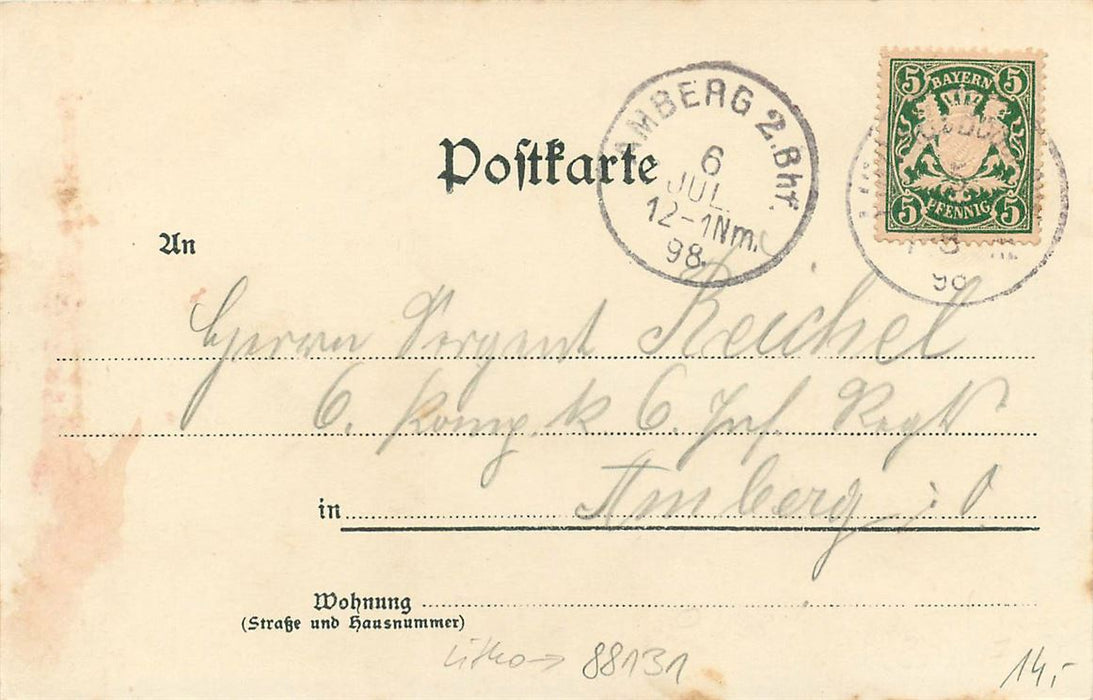 5 BAYERN 5
5 PFENNIG 5
AMBERG 2. Bhf.
6
JUL.
12-1Nm.
98.
98
Postkarte
An
Herrn Sergent Reichel
6. Komp. k 6. Inf. Regt
in Amberg i. O.
Wohnung
(Straße und Hausnummer)
Litho → 88131
14,-